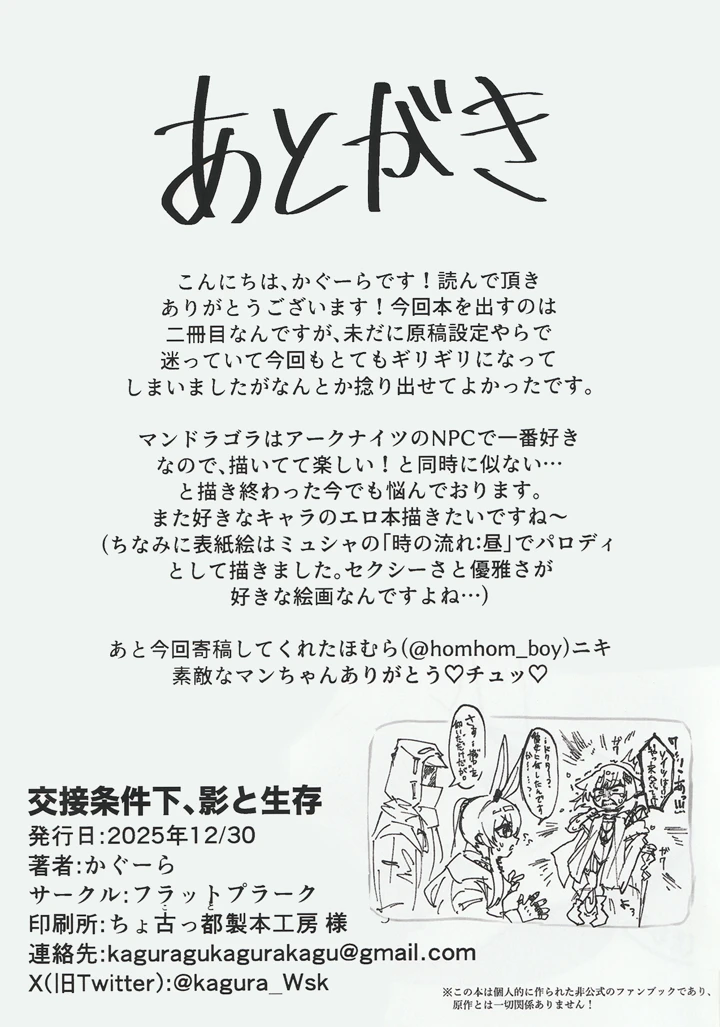 あとがき
こんにちは、かぐーらです！読んで頂き
ありがとうございます！今回本を出すのは
二冊目なんですが、未だに原稿設定やらで
迷っていて今回もとてもギリギリになって
しまいましたがなんとか捻り出せてよかったです。
マンドラゴラはアークナイツのNPCで一番好き
なので、描いてて楽しい！と同時に似ない…
と描き終わった今でも悩んでおります。
また好きなキャラのエロ本描きたいですね〜
(ちなみに表紙絵はミュシャの「時の流れ:昼」でパロディ
として描きました。セクシーさと優雅さが
好きな絵画なんですよね…)
あと今回寄稿してくれたほむら(@homhom_boy)ニキ
素敵なマンちゃんありがとう♡チュッ♡
交接条件下、影と生存
発行日:2025年12/30
著者:かぐーら
サークル:フラットプラーク
印刷所:ちょ古っ都製本工房 様
こ と
連絡先:kaguragukagurakagu@gmail.com
X(旧Twitter):@kagura_Wsk
※この本は個人的に作られた非公式のファンブックであり、
原作とは一切関係ありません！